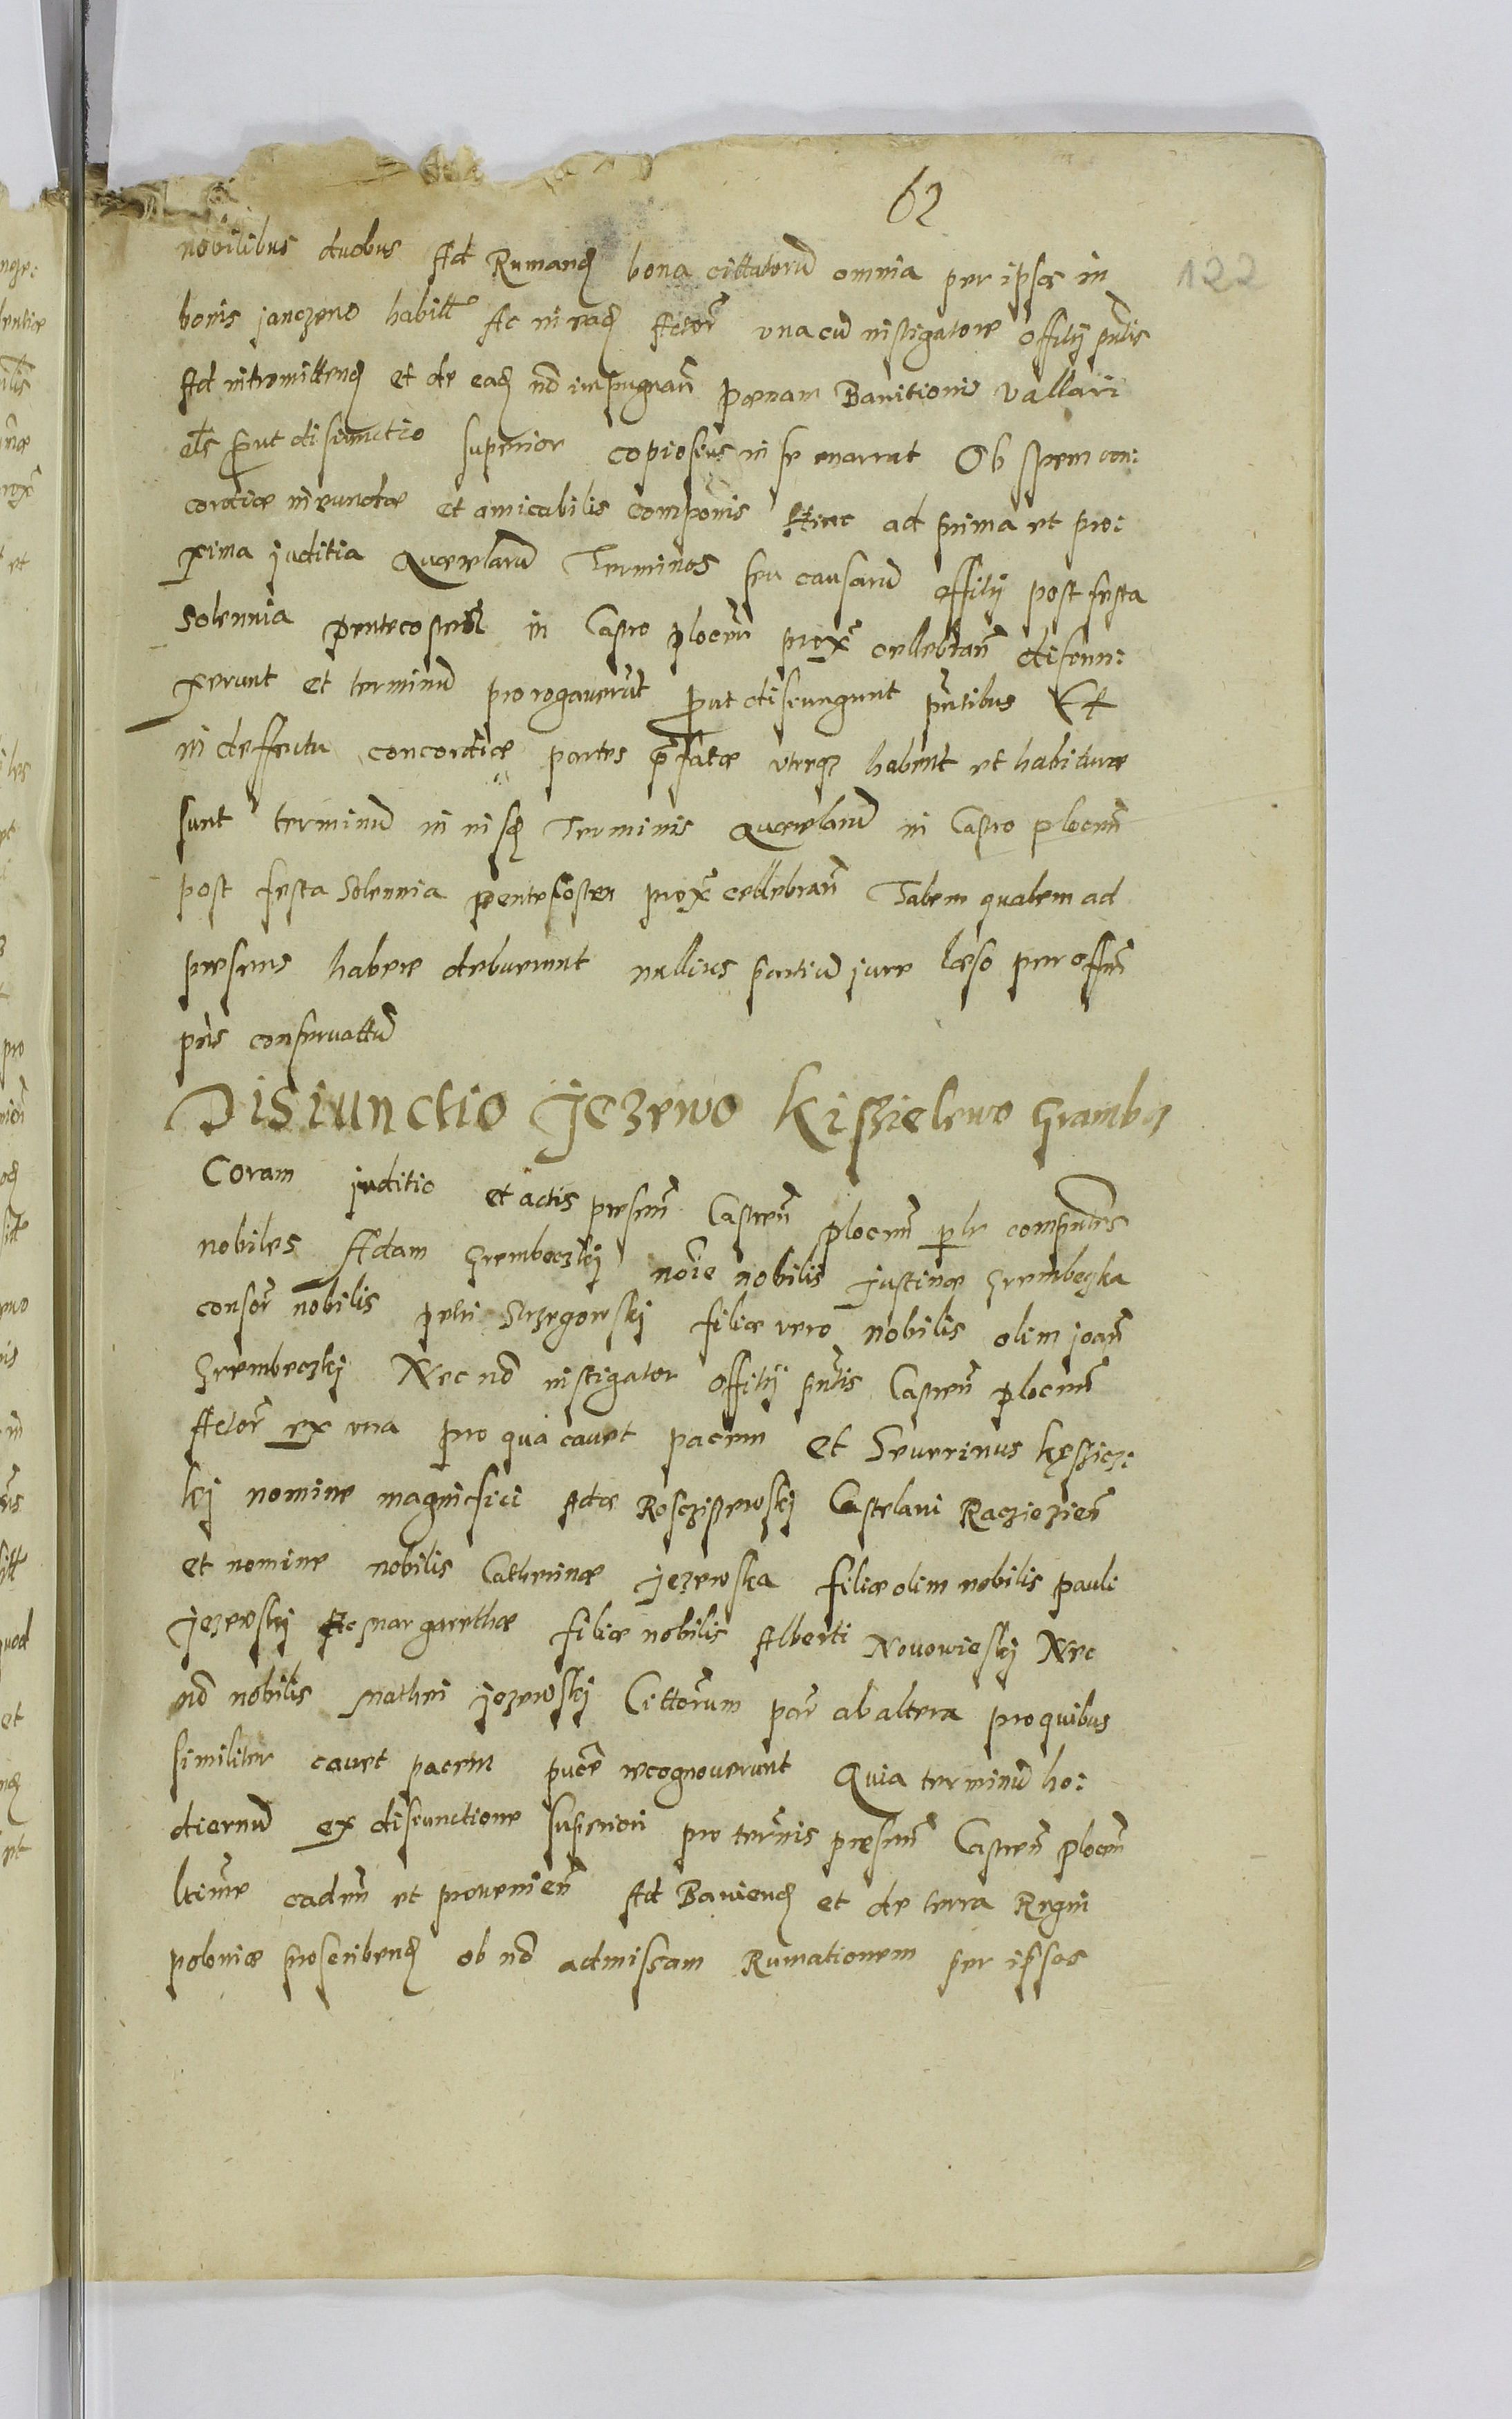 62
122
nobilibus duobus Ad Rumand bona cittatorũ omnia per ipsos in
bonis janczewo habitt Ac in ead Actor una cũ instigatore offitÿ pntis
Ad intromittend et de ead nõ impugnan pœnam Banitionis vallari
etc prout disiunctio superior copiosius in se enarrat Ob spem con:
cordiæ ineundæ et amicabilis componis Hinc ad prima et pro:
xima juditia Querelarũ Terminos seu causarũ offitÿ post festa
Solennia pentecostes in Castro plocen prox cellebran diseun:
xerunt et terminũ prorogaverũt prout diseungunt pntibus Et
in deffectu concordiæ partes præfatæ utreq habent et habituræ
sunt terminũ in iisd Terminis Querelarũ in Castro plocen
post festa Solennia pentecostes prox cellebran Talem qualem ad
præsens habere debuerunt nullius partiũ jure læso per offm
pns conservattũ
Disiunctio Jezewo Kiszielewo Grambcz
Coram juditio et actis præsen Castren plocen plr compntes
nobiles Adam Grembeczkÿ noie nobilis Justinæ Grembeczka
consor nobilis petri Strzegowskÿ filiæ vero nobilis olim joan
Grembeczkÿ Nec nõ instigator offitÿ pntis Castren plocen
Actor ex una pro qua cavet pacem et Severinus kęsszicz:
kj nomine magnifici Adæ Rosczissewskÿ Castelani Racziezien
et nomine nobilis Catherinæ jezewska filiæ olim nobilis pauli
jezewskÿ Ac margarethæ filiæ nobilis Alberti Nowowieskÿ Nec
nõ nobilis mathei jezewskÿ Cittorum par ab altera pro quibus
similiter cavet pacem puce recognoverunt Quia terminũ ho:
diernũ ex diseunctione superiori pro terinis præsen Castren plocen
ltime caden et provenien Ad Baniend et de terra Regni
poloniæ proscribend ob nõ admissam Rumationem per ipsos